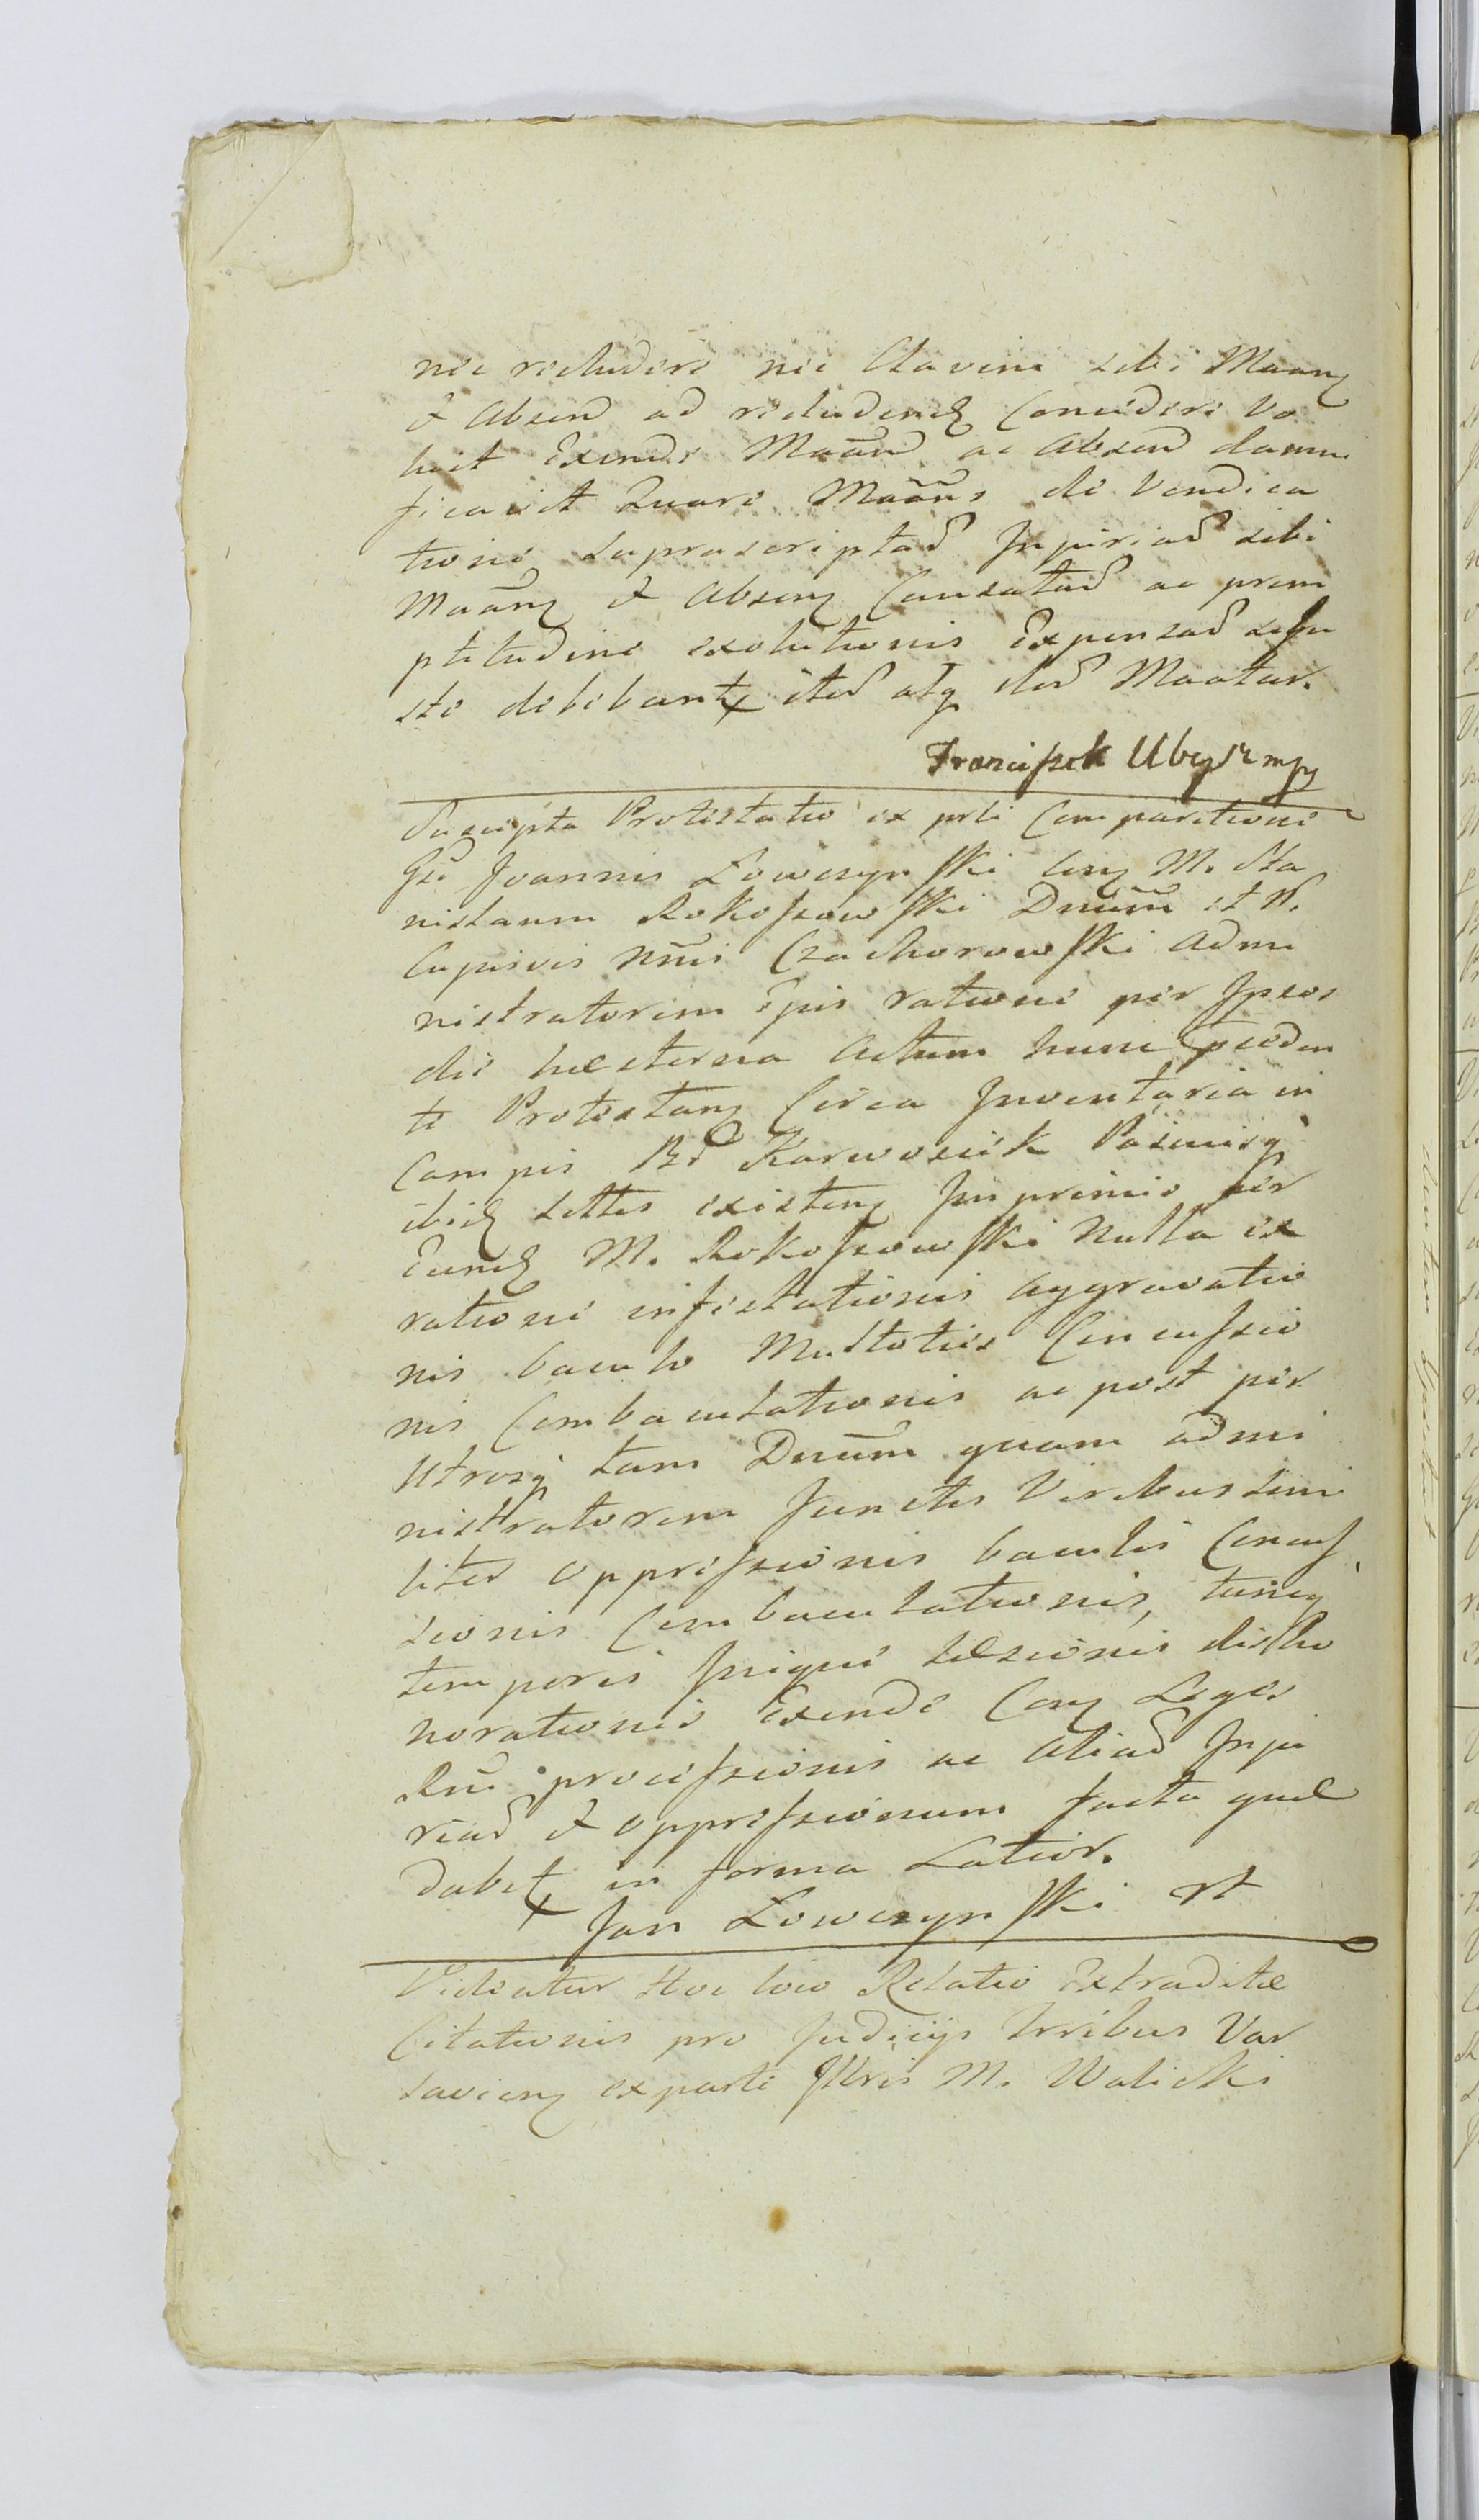 nec recludere nec Clavem sibi Maanz
& Absen ad recludendz Concedere Vo
luit Exinde Maan ac Absen damni
ficavit Quare Maans de Vendica
tione suprascriptar Injuriar sibi
Maanz & Absenz Causatar ac prom
ptitudine exolutionis Expensar
sto debebantx iter atq iter Maatur.
Franciszek Ubysz mp
Suscepta Protestatio ex prte Comparitione
Gsi Joannis Lowczynski Conz M. Sta
nislaum Rokoszowski Dnum et P.
Cujusvis Nnis Czachorowski Admi
nistratorem Ejus ratione per Ipsos
die hesterna Actum hunc pceden
te Protestanz Circa Inventaria in
Campis Br Karwosiek Pasionisq
ibidz settes existenz Inprimis per
Eundz M. Rokoszowski Nulla ex
ratione infestationis aggravatio
nis baculo Multoties Concussio
nis Combaculationis ac post per
Utrosq tam Dnum quam admi
nistratorem Junctis Viribus simi
liter oppressionis baculis Concus
sionis Combaculationis, tuncq
temporis Inique Læsionis disho
norationis Exinde Conz Leges
Rni processionis ac Aliar Inju
riar & oppressionum facta quæ
dabitx in forma Latior.
Jan Lowczynski
Videatur Hoc loco Relatio Extraditæ
Citationis pro Judicijs Trribus Var
saviens ex parte Illris M. Walicki